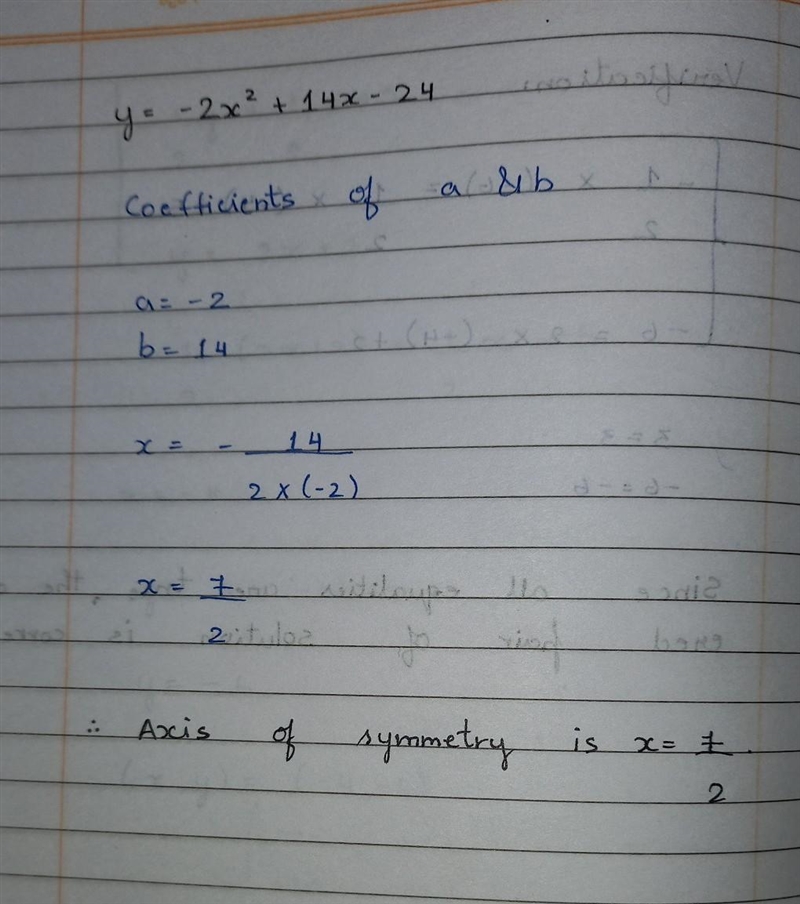 y = -2x² + 14x - 24
Coefficients of a & b
a = -2
b = 14
x = - 14
2 x (-2)
x = 7
2
∴ Axis of symmetry is x = 7.
2